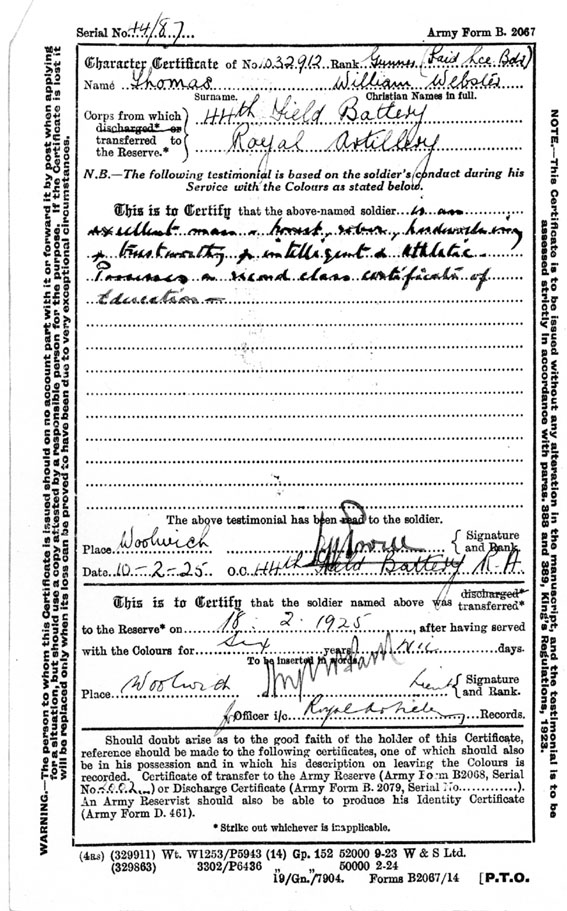 Serial No. 14/87... Army Form B. 2067
Character Certificate of No. 1032912 Rank Gunner (Paid Lce. Bdr)
Name Thomas William Webster
Surname. Christian Names in full.
Corps from which
discharged* or
transferred to
the Reserve.*
44th Field Battery
Royal Artillery
N.B.—The following testimonial is based on the soldier's conduct during his
Service with the Colours as stated below.
This is to Certify that the above-named soldier is an
excellent man - honest, sober, hardworking
& trustworthy & intelligent & athletic -
Possesses a second class certificate of
Education -
The above testimonial has been read to the soldier.
Place Woolwich Signature
and Rank.
Date 10-2-25. O.C. 44th Field Battery R.A.
This is to Certify that the soldier named above was discharged*
transferred*
to the Reserve* on 18. 2. 1925, after having served
with the Colours for Six years Nil days.
To be inserted in words.
Place Woolwich Lieut Signature
and Rank.
for Officer i/c Royal Artillery Records.
Should doubt arise as to the good faith of the holder of this Certificate,
reference should be made to the following certificates, one of which should also
be in his possession and in which his description on leaving the Colours is
recorded. Certificate of transfer to the Army Reserve (Army Form B2068, Serial
No. ) or Discharge Certificate (Army Form B. 2079, Serial No. ).
An Army Reservist should also be able to produce his Identity Certificate
(Army Form D. 461).
* Strike out whichever is inapplicable.
(4RS) (329911) Wt. W1253/P5943 (14) Gp. 152 52000 9-23 W & S Ltd.
(329863) 3302/P6436 „ 50000 2-24
19/Gn./7904. Forms B2067/14 [P.T.O.
WARNING.—The person to whom this Certificate is issued should on no account part with it or forward it by post when applying
for a situation, but should use a copy attested by a responsible person for the purpose. If the Certificate is lost it
will be replaced only when its loss can be proved to have been due to very exceptional circumstances.
NOTE.—This Certificate is to be issued without any alteration in the manuscript, and the testimonial is to be
assessed strictly in accordance with paras. 388 and 389, King's Regulations, 1923.